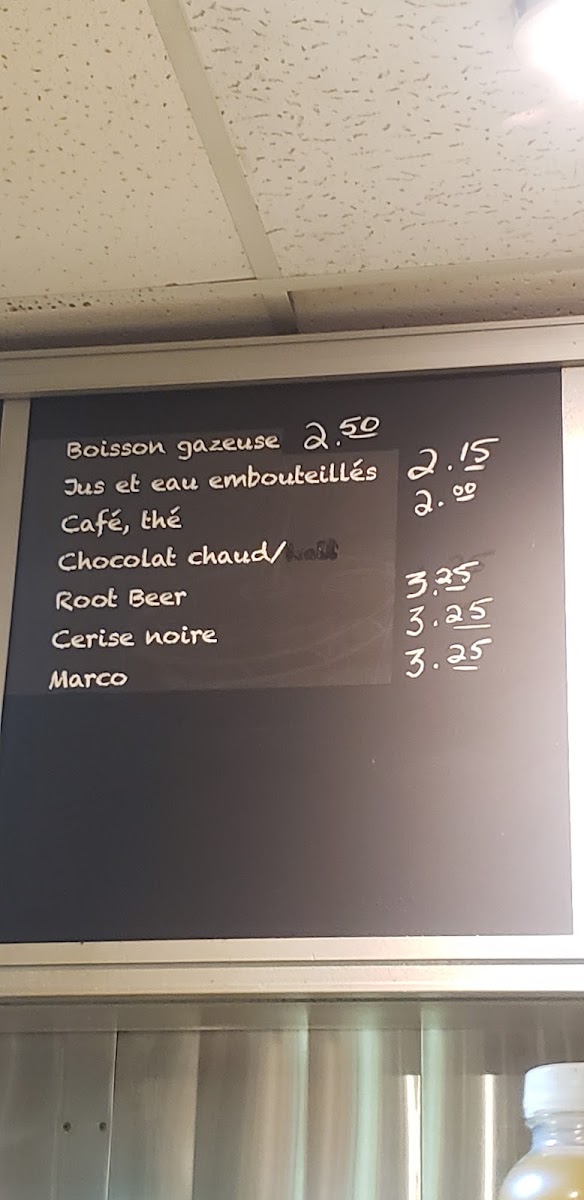 Boisson gazeuse 2.50
Jus et eau embouteillés 2.15
Café, thé 2.00
Chocolat chaud/
Root Beer 3.25
Cerise noire 3.25
Marco 3.25